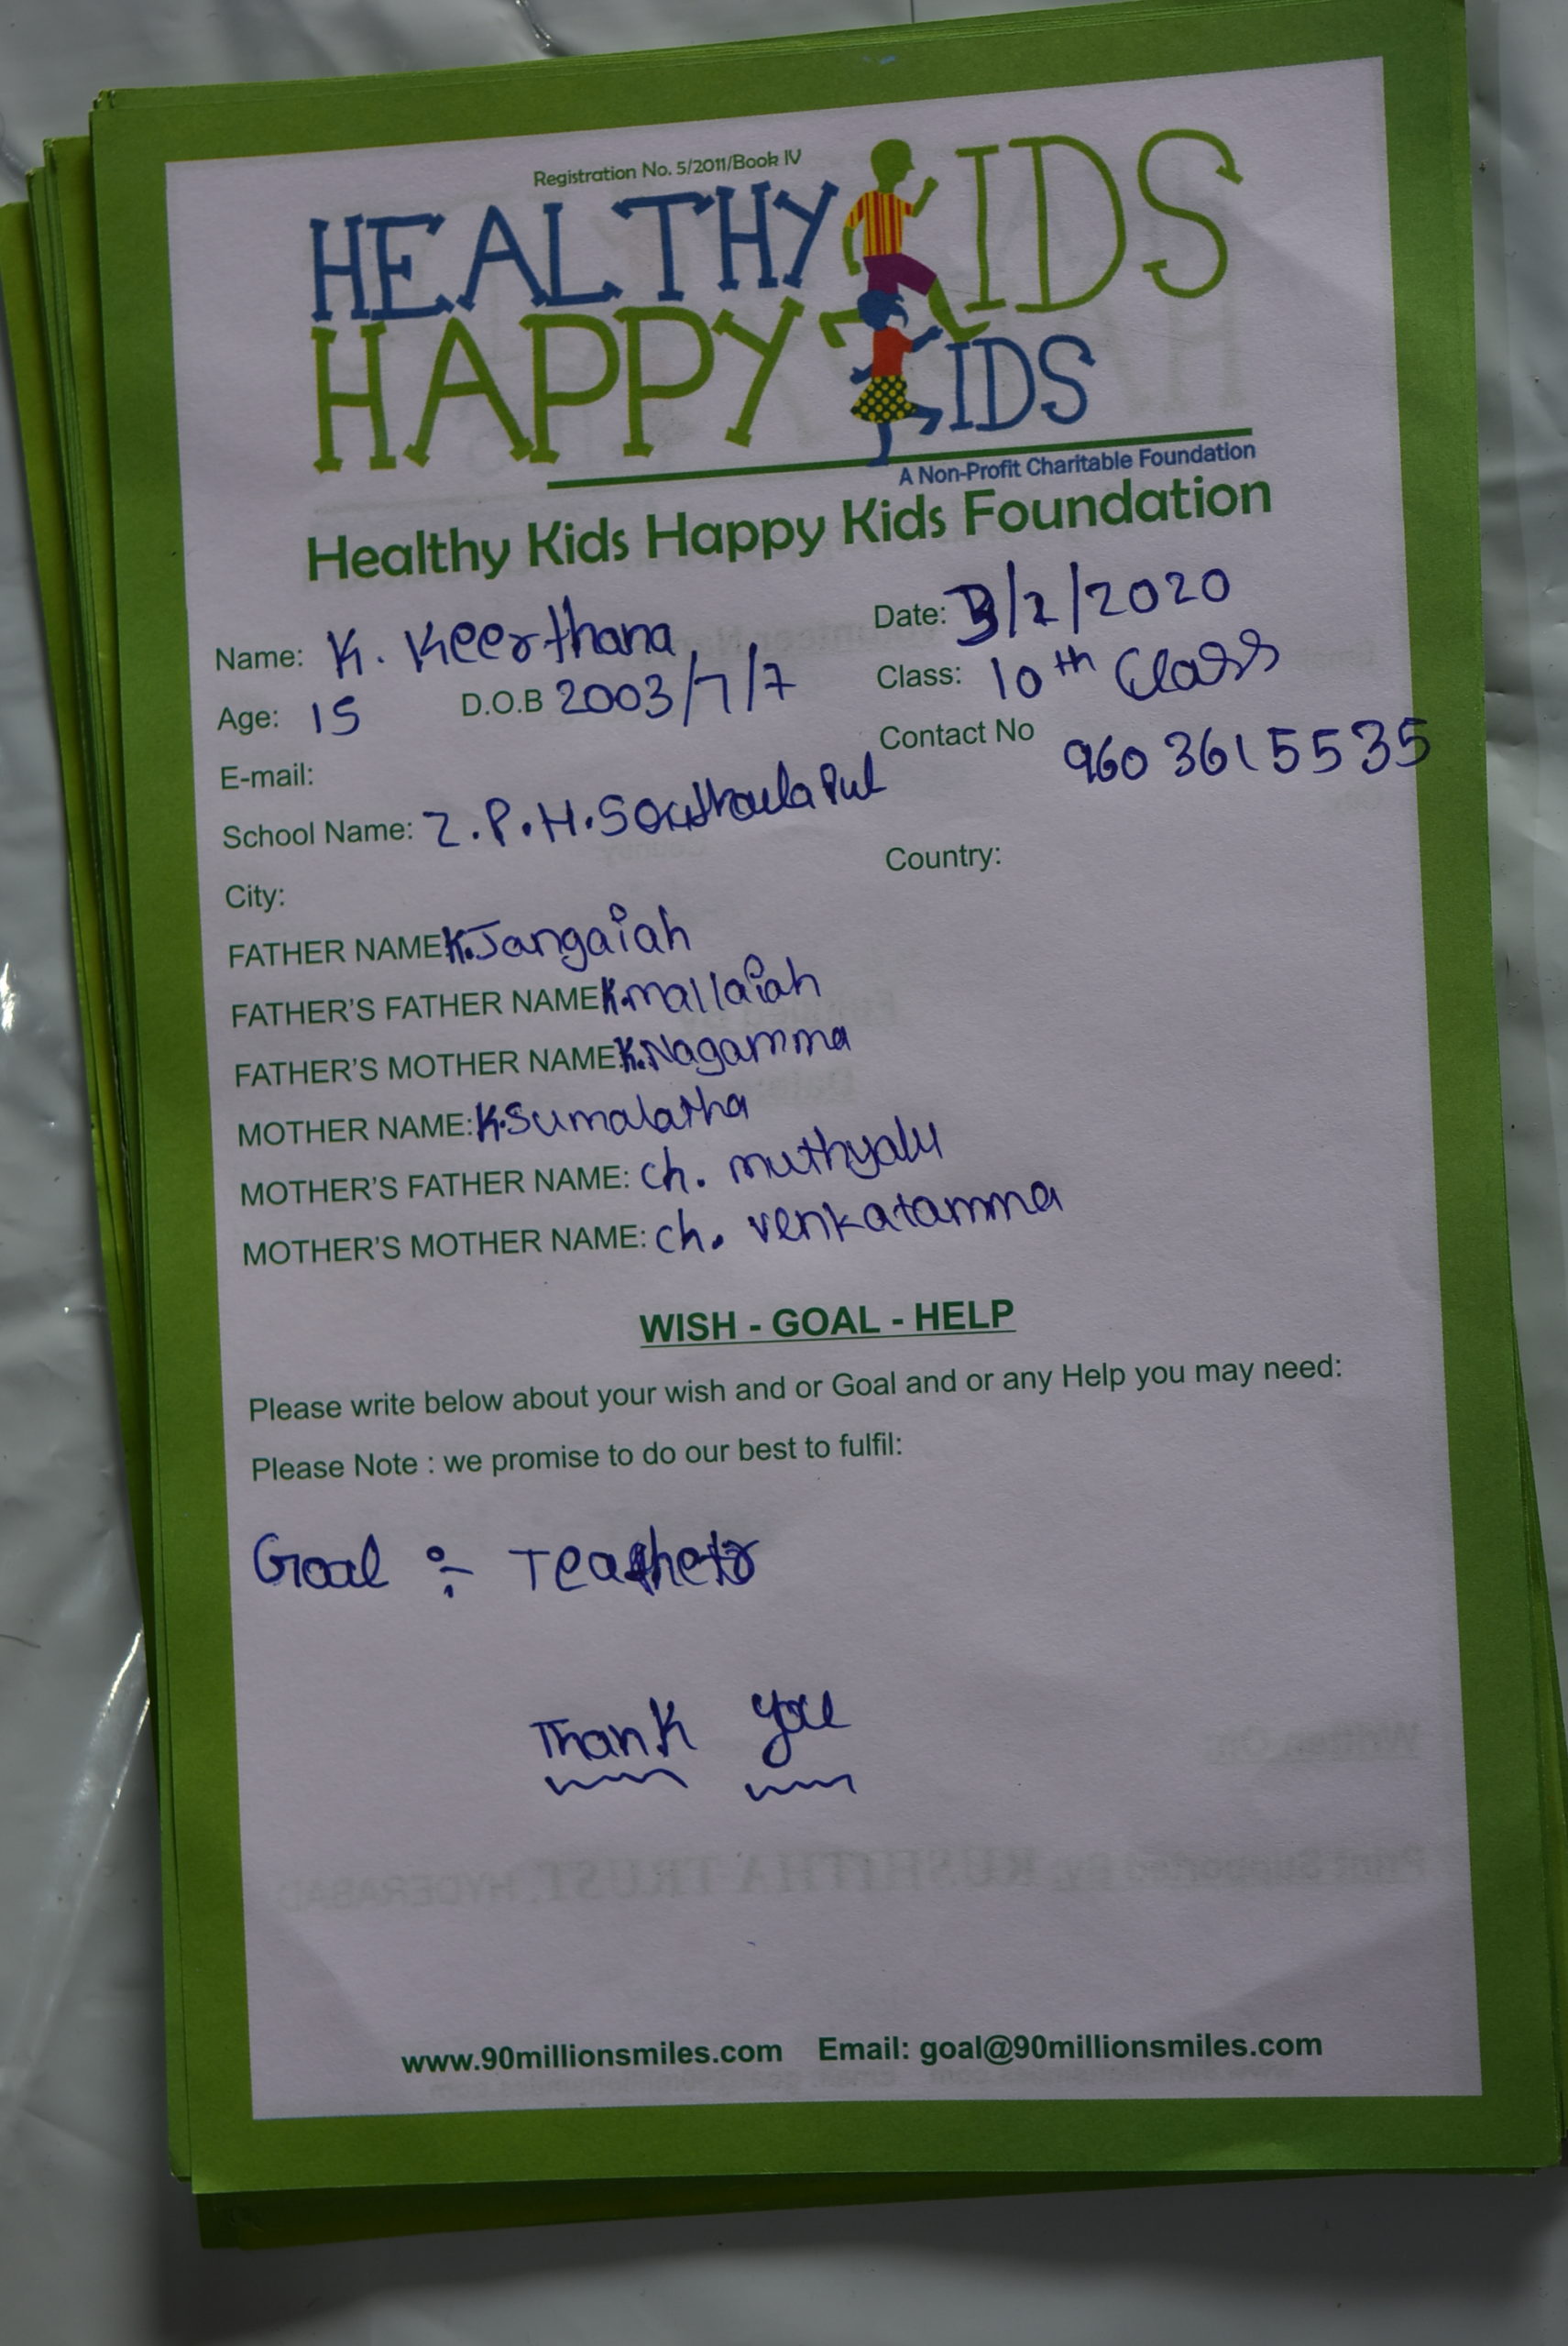 Registration No. 5/2011/Book IV
HEALTHY KIDS
HAPPY KIDS
A Non-Profit Charitable Foundation
Healthy Kids Happy Kids Foundation
Name: K. Keerthana Date: 3/2/2020
Age: 15 D.O.B 2003/7/7 Class: 10th Class
E-mail: Contact No 960 3615535
School Name: Z.P.H.S
City: Country:
FATHER NAME K.Jangaiah
FATHER'S FATHER NAME K.mallaiah
FATHER'S MOTHER NAME K.Nagamma
MOTHER NAME: K.Sumalatha
MOTHER'S FATHER NAME: ch. muthyalu
MOTHER'S MOTHER NAME: ch. venkatamma
WISH - GOAL - HELP
Please write below about your wish and or Goal and or any Help you may need:
Please Note : we promise to do our best to fulfil:
Goal ÷ Teacher
Thank you
www.90millionsmiles.com Email: goal@90millionsmiles.com